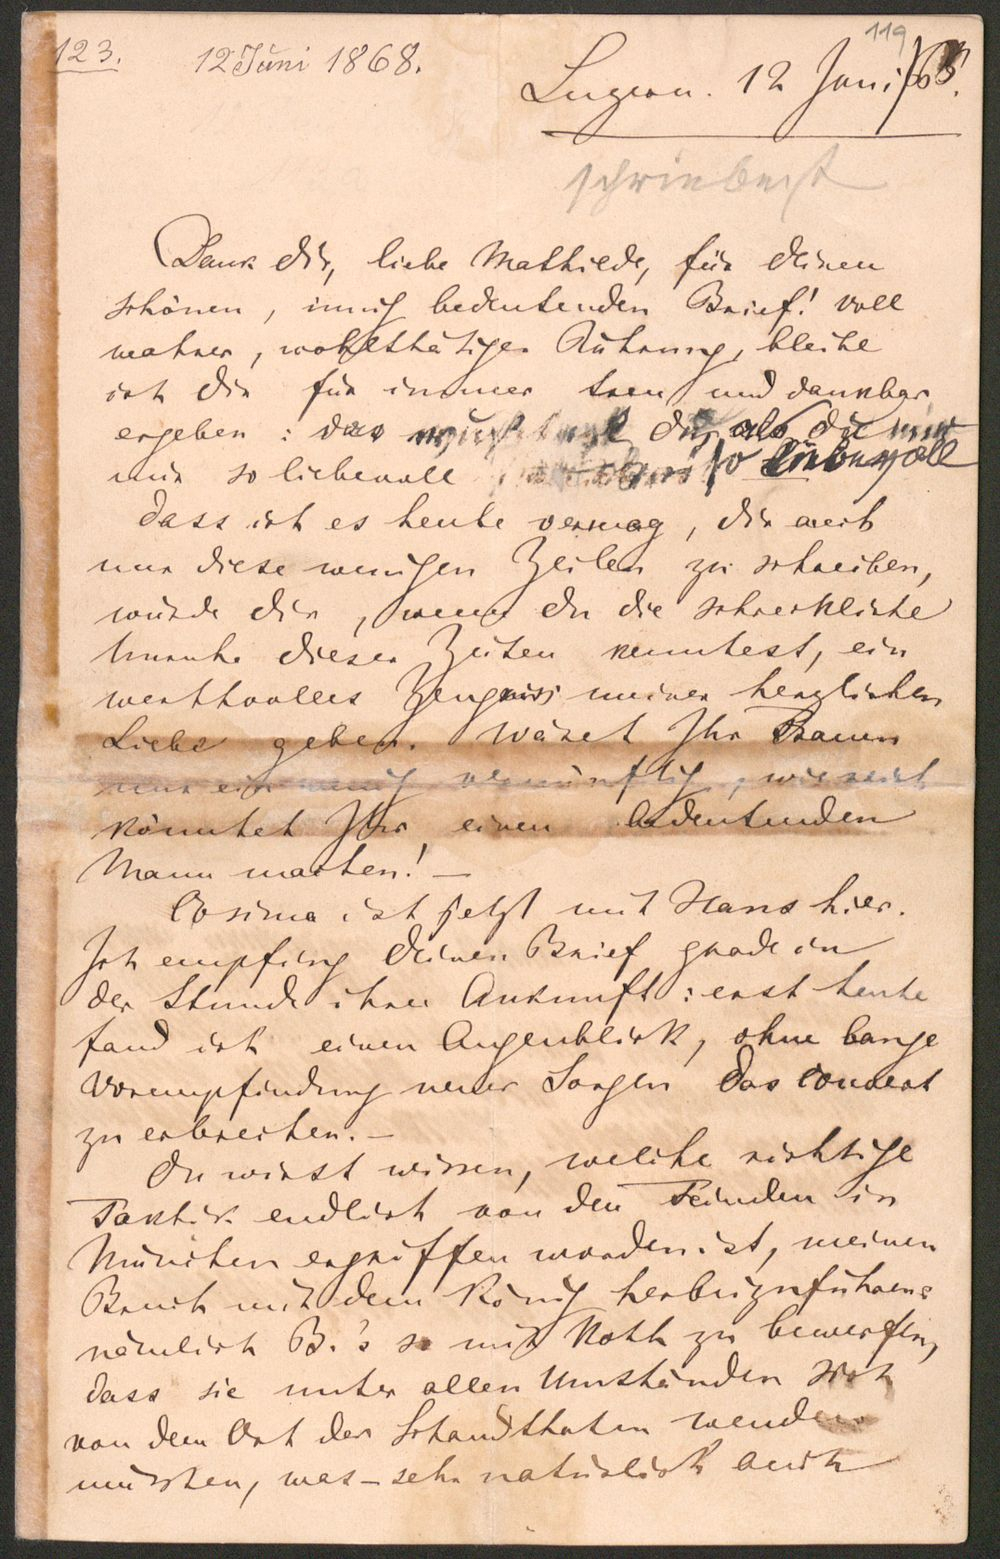 119
123. 12 Juni 1868.
Luzern. 12 Juni/68.
schriebest
Dank dir, liebe Mathilde, für deinen
schönen, innig bedeutenden Brief! Voll
wahrer, wohlthätiger Rührung, bleibe
ich dir für immer treu und dankbar
ergeben: das du, als du mir
mir so liebevoll so liebevoll
Dass ich es heute vermag, dir auch
nur diese wenigen Zeilen zu schreiben,
würde dir, wenn du die schreckliche
Unruhe dieser Zeiten kenntest, ein
werthvolles Zeugniss meiner herzlichen
Liebe geben. Wäret Ihr Frauen
nur ein wenig vernünftig, wie reich
könntet Ihr einen bedeutenden
Mann machen! –
Cosima ist jetzt mit Hans hier.
Ich empfing deinen Brief grade in
der Stunde ihrer Ankunft: erst heute
fand ich einen Augenblick, ohne bange
Vorempfindung neuer Sorgen das Couvert
zu erbrechen. –
Du wirst wissen, welche richtige
Taktik endlich von den Feinden in
München ergriffen worden ist, meinen
Bruch mit dem König herbeizuführen:
nämlich B.'s so mit Koth zu bewerfen,
dass sie unter allen Umständen sich
von dem Ort der Schandthaten wenden
müssten, was – sehr natürlich auch